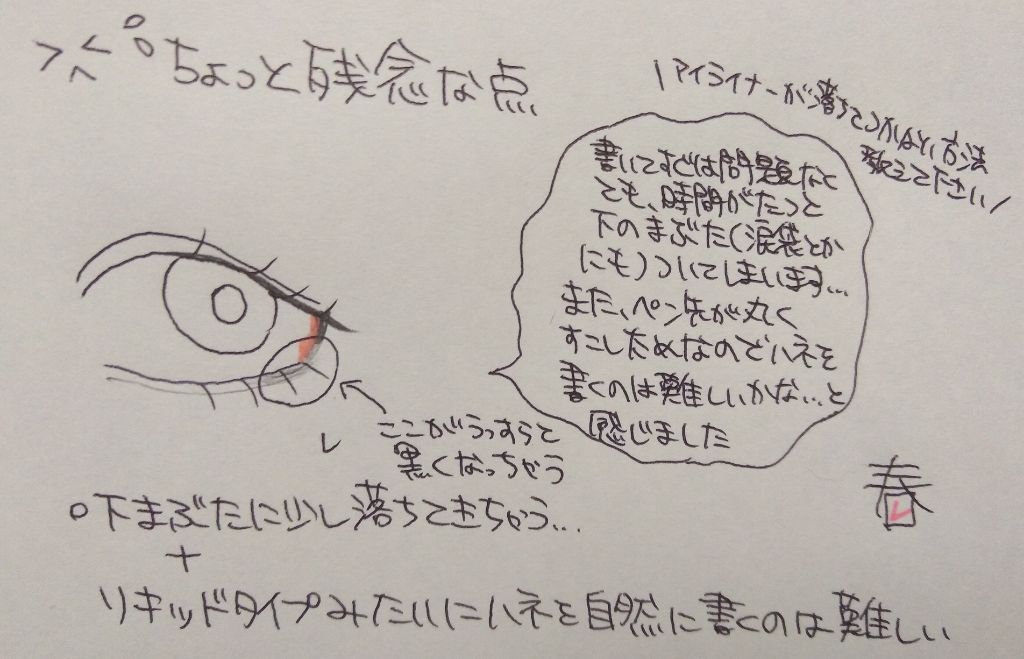 ちょっと残念な点
\アイライナーが落ちてつかない方法
教えてください/
書いてすぐは問題なく
ても、時間がたつと
下のまぶた(涙袋とか
にも)ついてしまいます...
また、ペン先が丸く
すこし太めなのでハネを
書くのは難しいかな...と
感じました
ここがうっすらと
黒くなっちゃう
春
○下まぶたに少し落ちてきちゃう...
+
リキッドタイプみたいにハネを自然に書くのは難しい